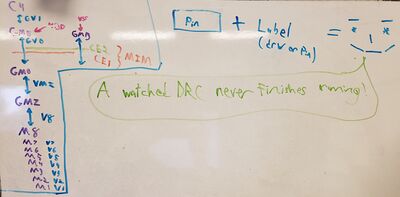 C4
GV1
GM0
GV0
GMA
CE2
CE1
MIM
GM0
VM2
GMZ
V8
M8
M7 V7
M6 V6
M5 V5
M4 V4
M3 V3
M2 V2
M1 V1
Pin + Label =
A watched DRC never finishes running!